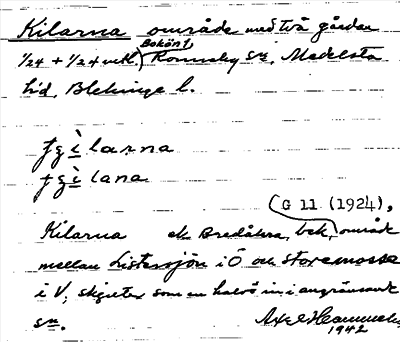 Kilarna område med två gårdar
Bokönt
1/24 + 1/24 mtl. Ronneby sn, Medelsta
hd, Blekinge l.
fʒi̇larna
fʒi̇lana
(G 11 (1924),
Kilarna Bredåkra, bek. område
mellan Listersjön i Ö och Storemosse
i V, skjuter som en halvö in i angränsande
sn.
Axel
1942